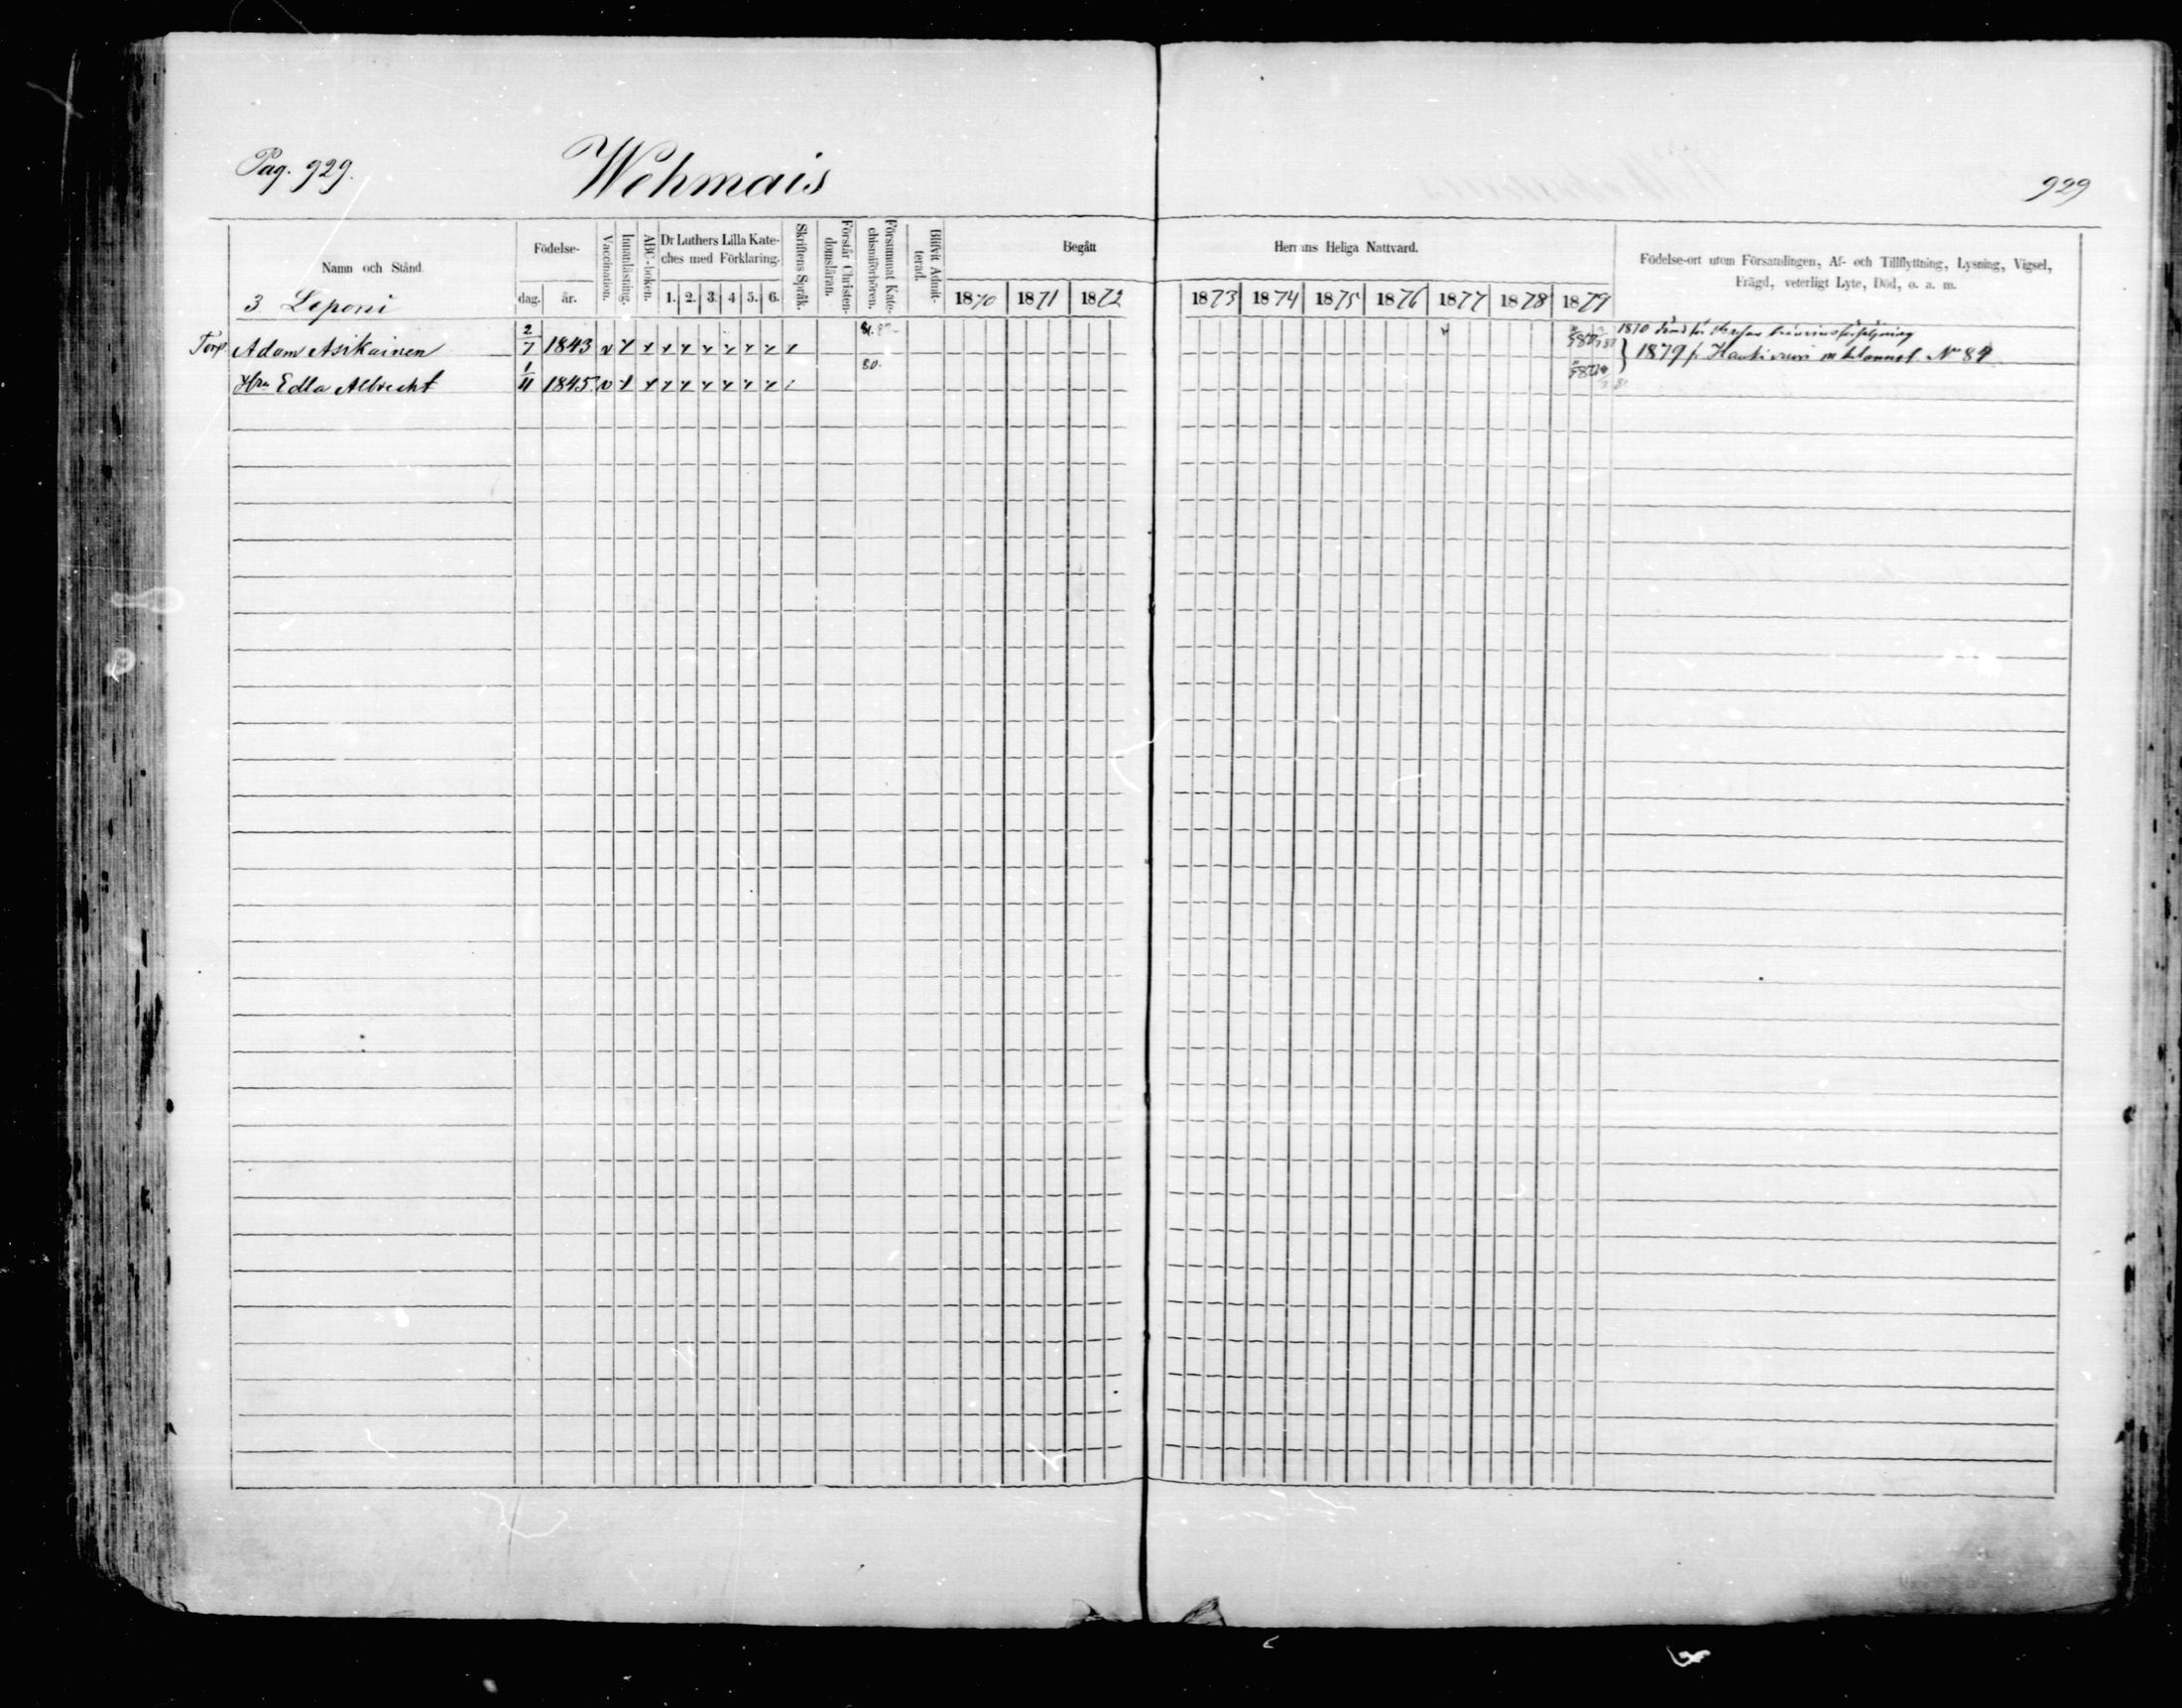 Pag. 929.
Wehmais
929
Namn och Stånd
Födelse-
dag. år.
Vaccination.
Innanläsning.
ABC-boken.
Dr Luthers Lilla Kate-
ches med Förklaring.
1. 2. 3. 4 5. 6.
Skriftens Språk.
Förstår Christen-
domsläran.
Försummat Kate-
chismiförhören.
Blifvit Admit-
terad.
Begått
1870 1871 1872
Herrans Heliga Nattvard.
1873 1874 1875 1876 1877 1878 1879
Födelse-ort utom Församlingen, Af- och Tillflyttning, Lysning, Vigsel,
Frägd, veterligt Lyte, Död, o. a. m.
3 Leponi
Torp. Adam Asikainen 2/7 1843
1879 fr Haukivuori Nro 84
Hru Edla Albrecht 1/11 1845 80.